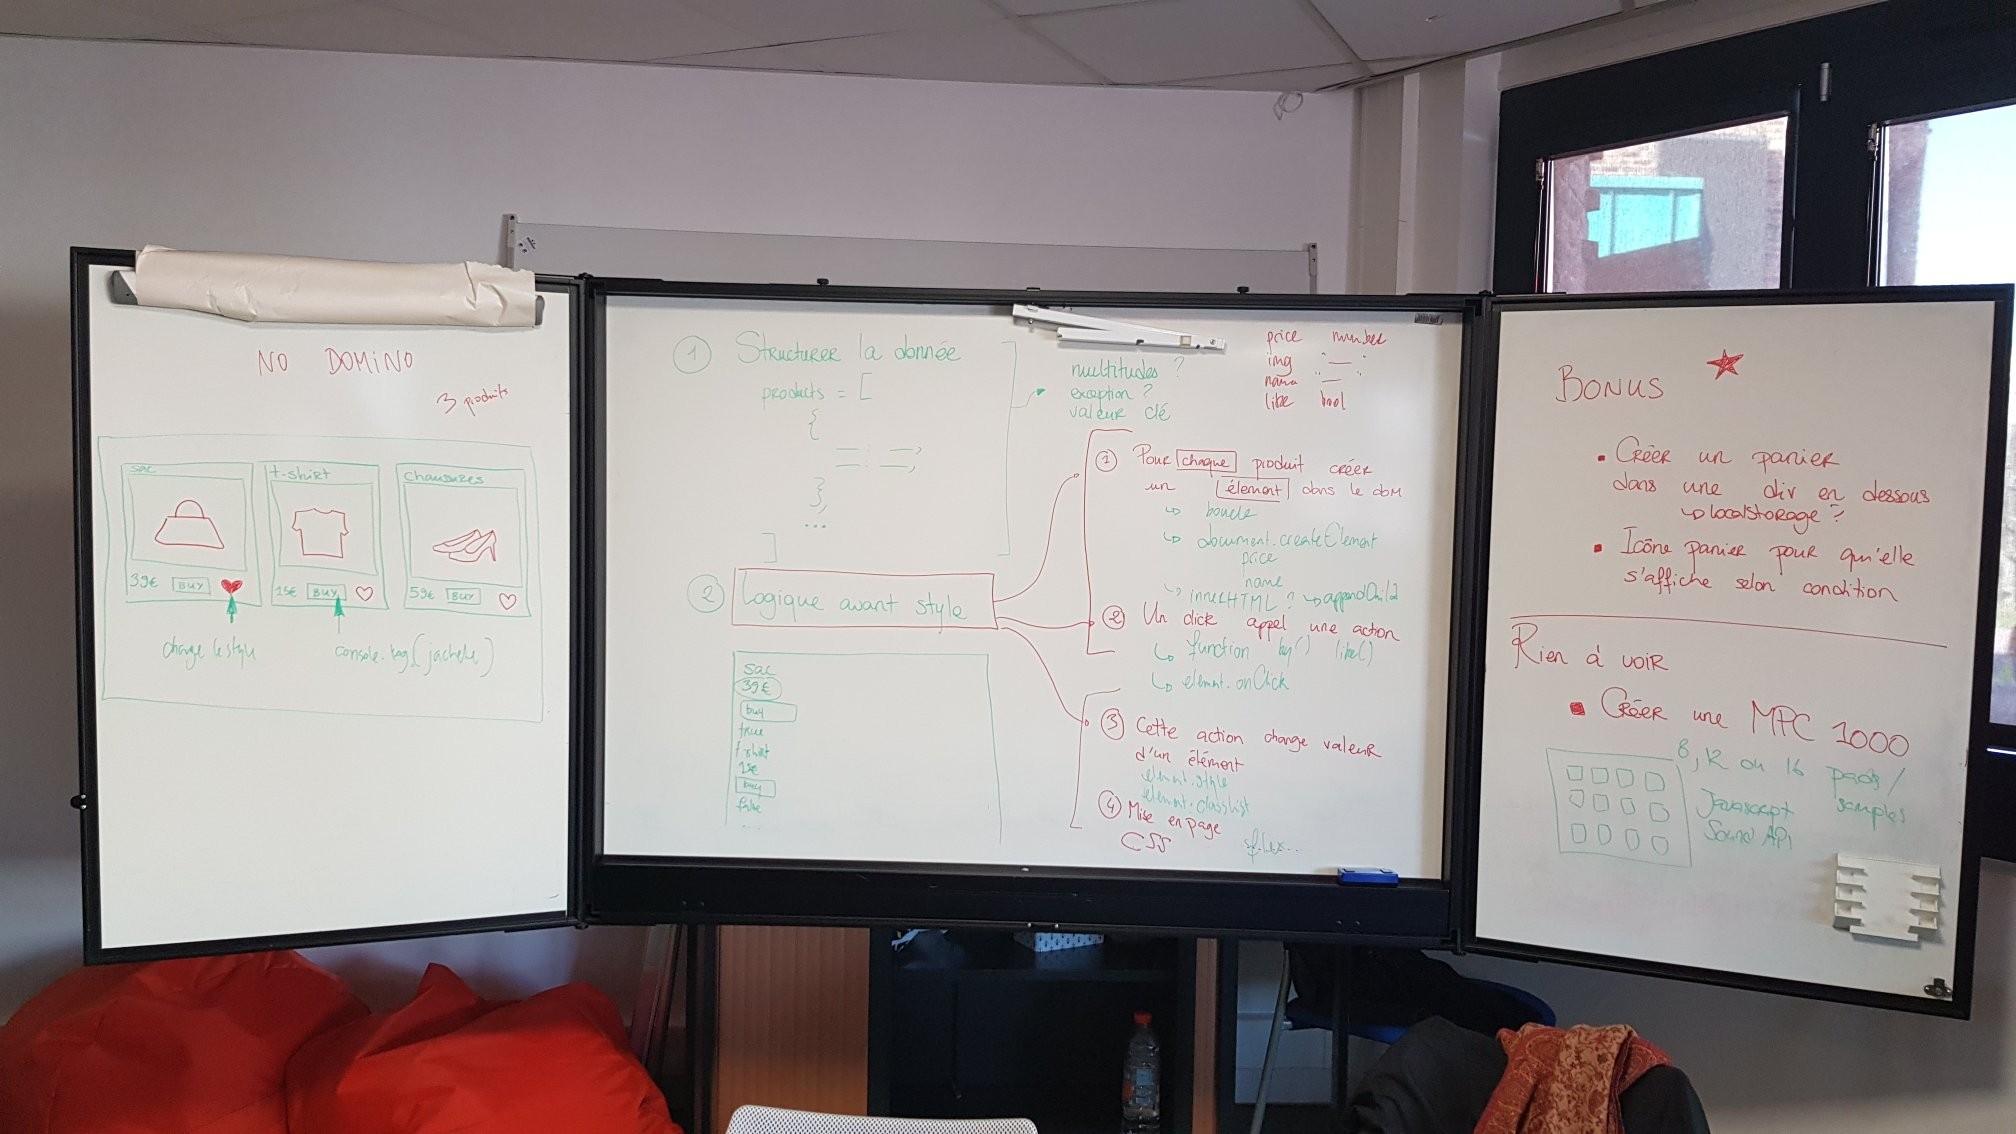 NO DOMINO
3 produits
sac
t-shirt
chaussures
39€ BUY
15€ BUY
59€ BUY
change le style
console.log(
1 Structurer la donnée
products = [
{
— : —,
— : —,
},
...
]
multitudes ?
exception ?
valeur clé
price number
img "—"
name "—"
like bool
2 Logique avant style
sac
39€
buy
true
t-shirt
15€
buy
false
1 Pour chaque produit créer
un élement dans le dom
↳ boucle
↳ document.createElement
price
name
↳ innerHTML ? ↳ appendChild
2 Un click appel une action
↳ function by() like()
↳ element.onClick
3 Cette action change valeur
d'un élément
element.style
element.classList
4 Mise en page
CSS flex...
BONUS
• Créer un panier
dans une div en dessous
↳ localstorage ?
• Icône panier pour qu'elle
s'affiche selon condition
Rien à voir
• Créer une MPC 1000
8, 12 ou 16 pads/
samples
Javascript
Sound API